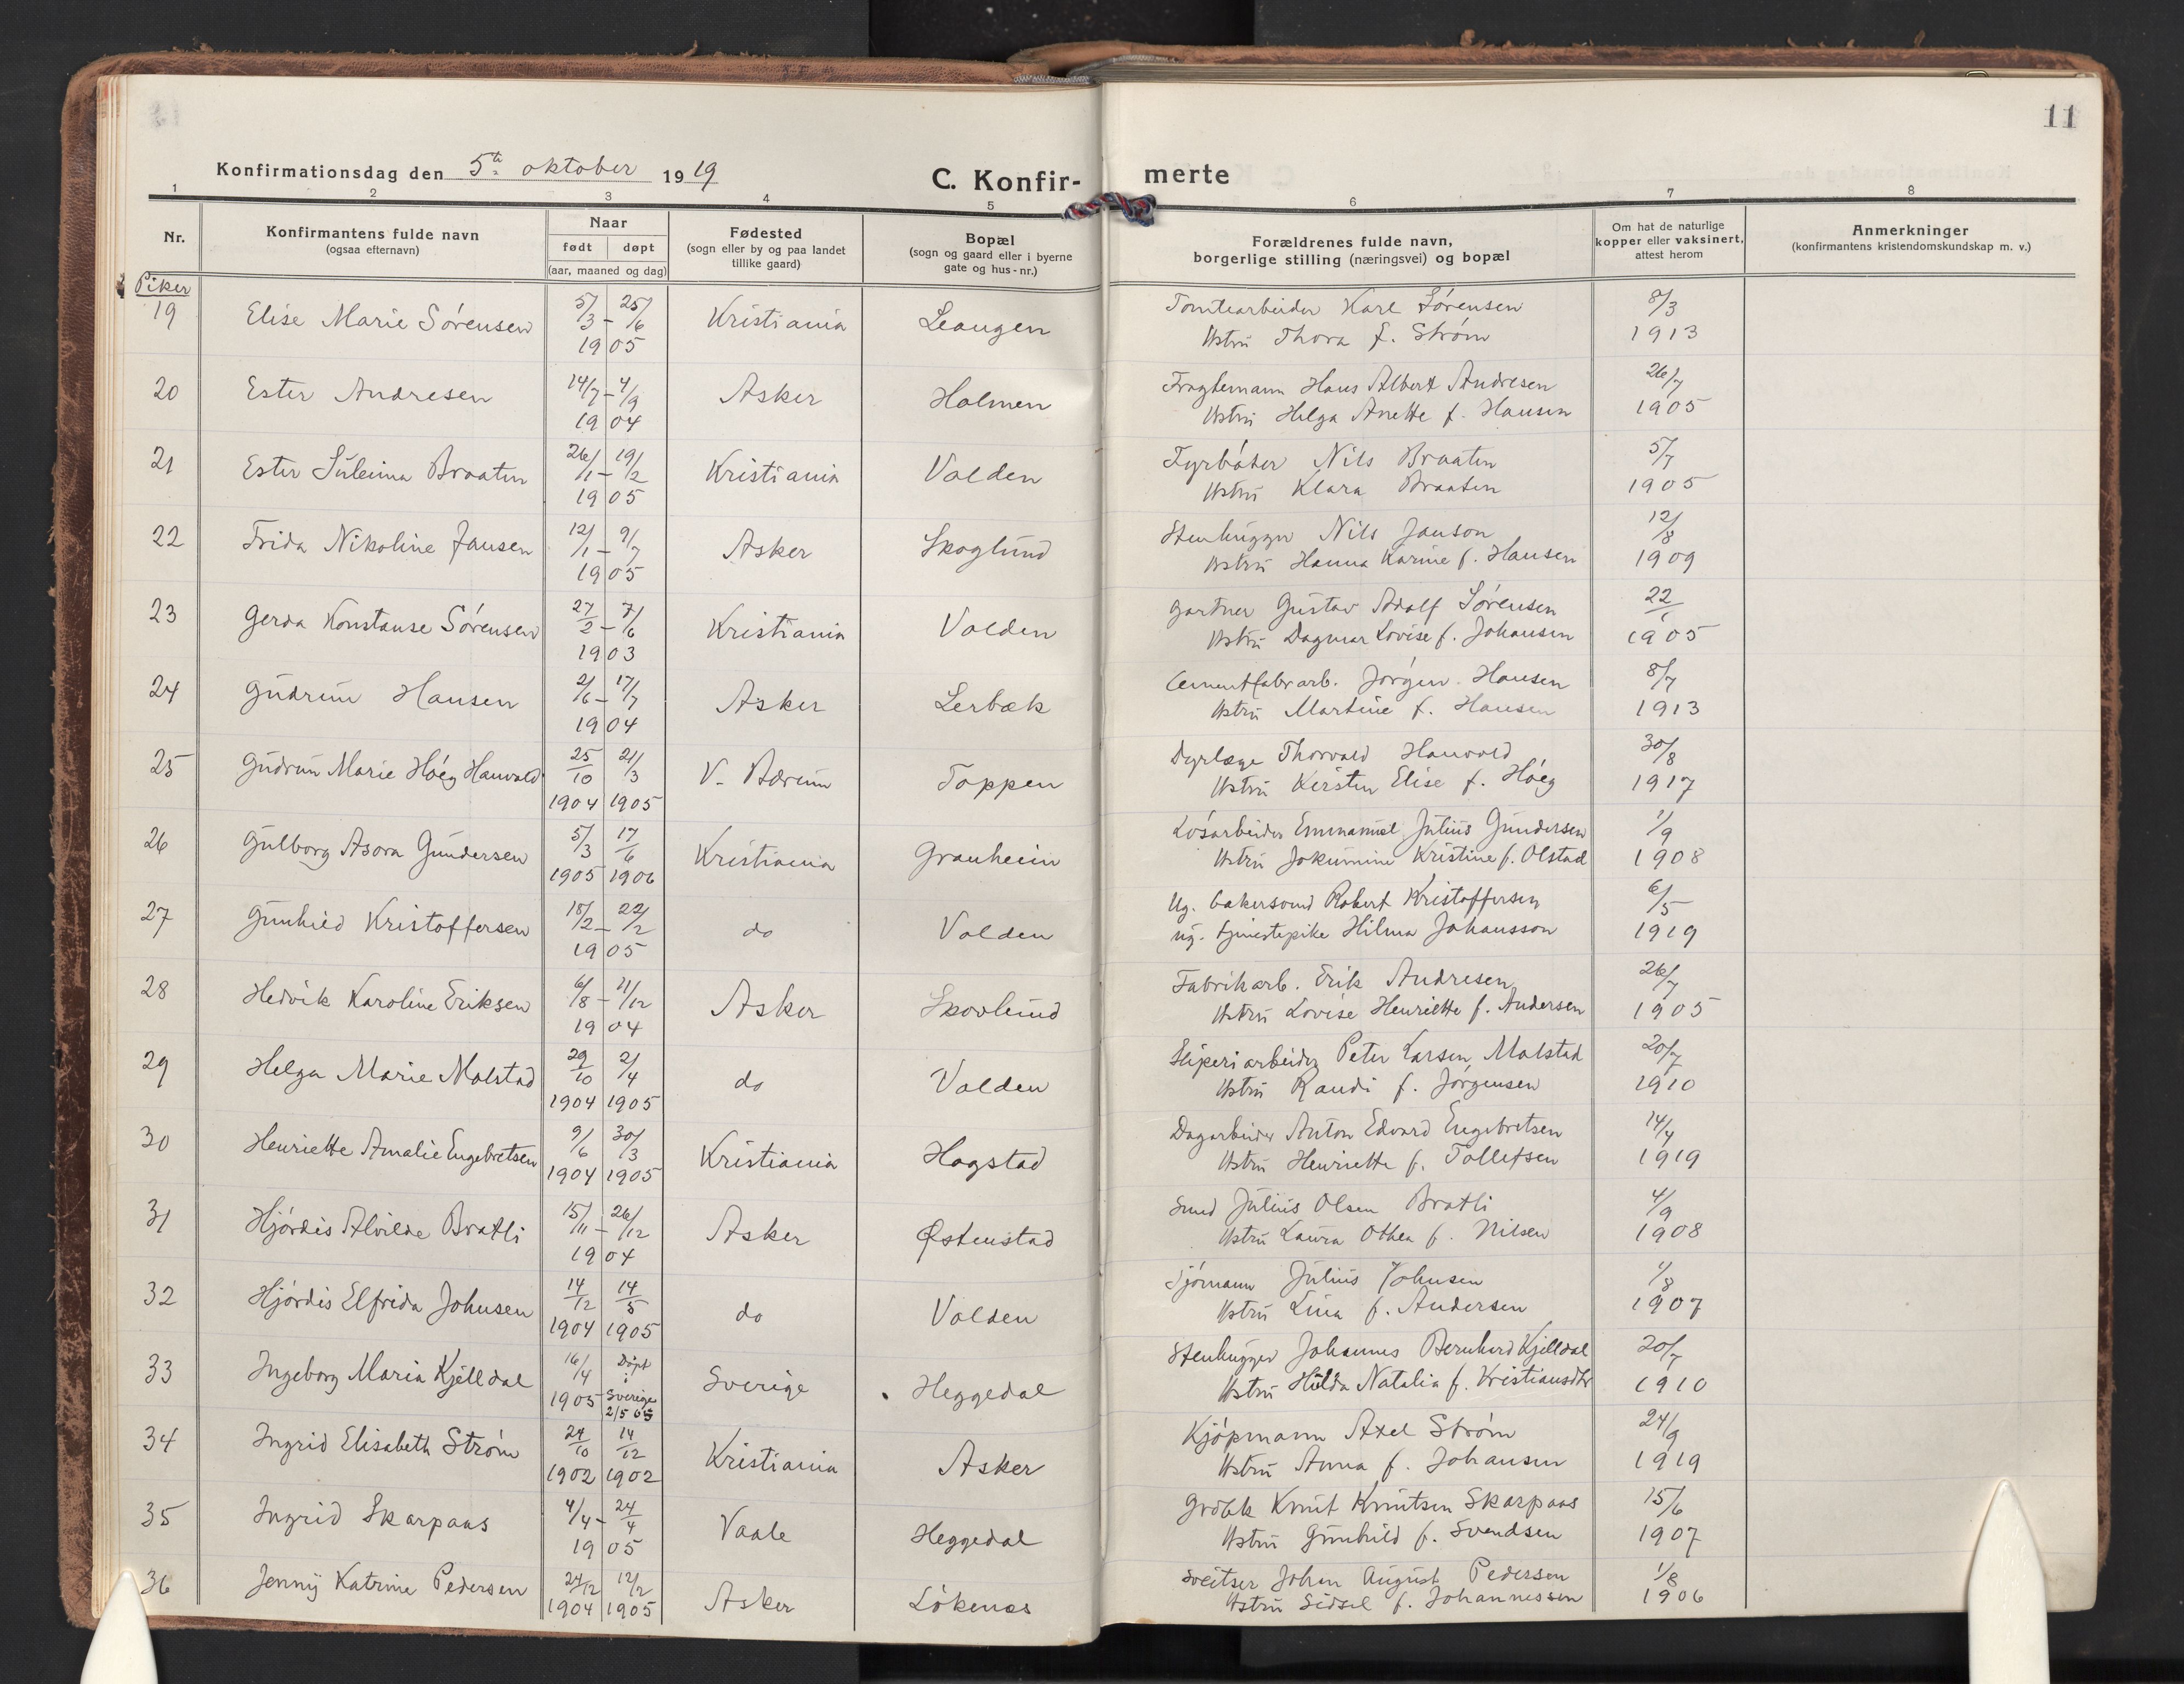 11
Konfirmationsdag den 5te oktober 1919
C. Konfir- merte
1 2 3 4 5 6 7 8
Nr.
Konfirmantens fulde navn
(ogsaa efternavn)
Naar
født døpt
(aar, maaned og dag)
Fødested
(sogn eller by og paa landet
tillike gaard)
Bopæl
(sogn og gaard eller i byerne
gate og hus-nr.)
Forældrenes fulde navn,
borgerlige stilling (næringsvei) og bopæl
Om hat de naturlige
kopper eller vaksinert,
attest herom
Anmerkninger
(konfirmantens kristendomskundskap m. v.)
Piker
19 Elise Marie Sörensen 5/3 - 25/6 1905 Kristiania Leangen Tomtearbeider Karl Sörensen 8/3
Hstru Thora f. Ström 1913
20 Ester Andresen 14/7 - 4/9 1904 Asker Holmen Fragtemann Hans Albert Andresen 26/7
Hstru Helga Anette f. Hansen 1905
21 Ester Suleima Braaten 26/1 - 19/2 1905 Kristiania Valden Fyrböter Nils Braaten 5/7
Hstru Klara Braaten 1905
22 Frida Nikoline Jansen 12/1 - 9/7 1905 Asker Skoglund Stenhugger Nils Janson 12/8
Hstru Hanna Karine f. Hansen 1909
23 Gerda Konstanse Sörensen 27/2 - 7/6 1903 Kristiania Valden Gartner Gustav Adolf Sörensen 22/1
Hstru Dagmar Lovise f. Johansen 1905
24 Gudrun Hansen 2/6 - 17/7 1904 Asker Lerbæk Cementfabr.arb. Jörgen Hansen 8/7
Hstru Martine f. Hansen 1913
25 Gudrun Marie Höeg Hauvald 25/10 1904 21/3 1905 V. Bærum Toppen Dyrlæge Thorvald Hauvald 30/8
Hstru Kirsten Elise f. Höeg 1917
26 Gulborg Asora Gundersen 5/3 1905 17/6 1906 Kristiania Granheim Lösarbeider Emmanuel Julius Gundersen 1/9
Hstru Jokumine Kristine f. Olstad 1908
27 Gunhild Kristoffersen 18/2 - 22/2 1905 do Valden Ug. bakersvend Robert Kristoffersen 6/5
ug. tjenestepike Hilma Johansson 1919
28 Hedvik Karoline Eriksen 6/8 - 21/12 1904 Asker Skovlund Fabrikarb. Erik Andresen 26/7
Hstru Lovise Henriette f. Andersen 1905
29 Helga Marie Malstad 29/10 1904 2/4 1905 do Valden Sliperiarbeider Peter Larsen Malstad 20/7
Hstru Randi f. Jörgensen 1910
30 Henriette Amalie Engebretsen 9/6 1904 30/3 1905 Kristiania Hagstad Dagarbeider Anton Edvard Engebretsen 14/4
Hstru Henriette f. Tollefsen 1919
31 Hjördis Alvilde Bratli 15/11 - 26/12 1904 Asker Østenstad Smed Julius Olsen Bratli 4/9
Hstru Laura Othea f. Nilsen 1908
32 Hjördis Elfrida Johnsen 14/12 1904 14/5 1905 do Valden Sjömann Julius Johnsen 1/8
Hstru Lina f. Andersen 1907
33 Ingeborg Maria Kjelldal 16/4 1905 Döpt i Sverige 2/5 05 Sverige Heggedal Stenhugger Johannes Bernhard Kjelldal 20/7
Hstru Hulda Natalia f. Kristiansdtr 1910
34 Ingrid Elisabeth Ström 24/10 1902 14/12 1902 Kristiania Asker Kjöpmann Axel Ström 24/9
Hstru Anna f. Johansen 1919
35 Ingrid Skarpaas 4/4 - 24/4 1905 Vaale Heggedal Grdbk Knut Knutsen Skarpaas 15/6
Hstru Gunhild f. Svendsen 1907
36 Jenny Katrine Pedersen 24/12 1904 12/2 1905 Asker Lökenes Sveitser Johan August Pedersen 1/8
Hstru Sidsel f. Johannessen 1906